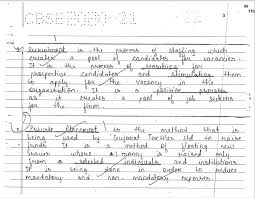 CBSE 2020-21
99
113
Recruitment is the process of staffing which
creates a pool of candidates for vacancies.
It is the process of searching for
prospective candidates and stimulating them
to apply for the vacancy in the
organisation. It is a positive process
as it creates a pool of job seekers
for the firm.
Private placement is the method that is
being used by Gujarat Textiles ltd to raise
funds. It is a method of floating new
issues where money is raised only
from selected individuals and institutions.
It is being done in order to reduce
mandatory and non mandatory expenses.